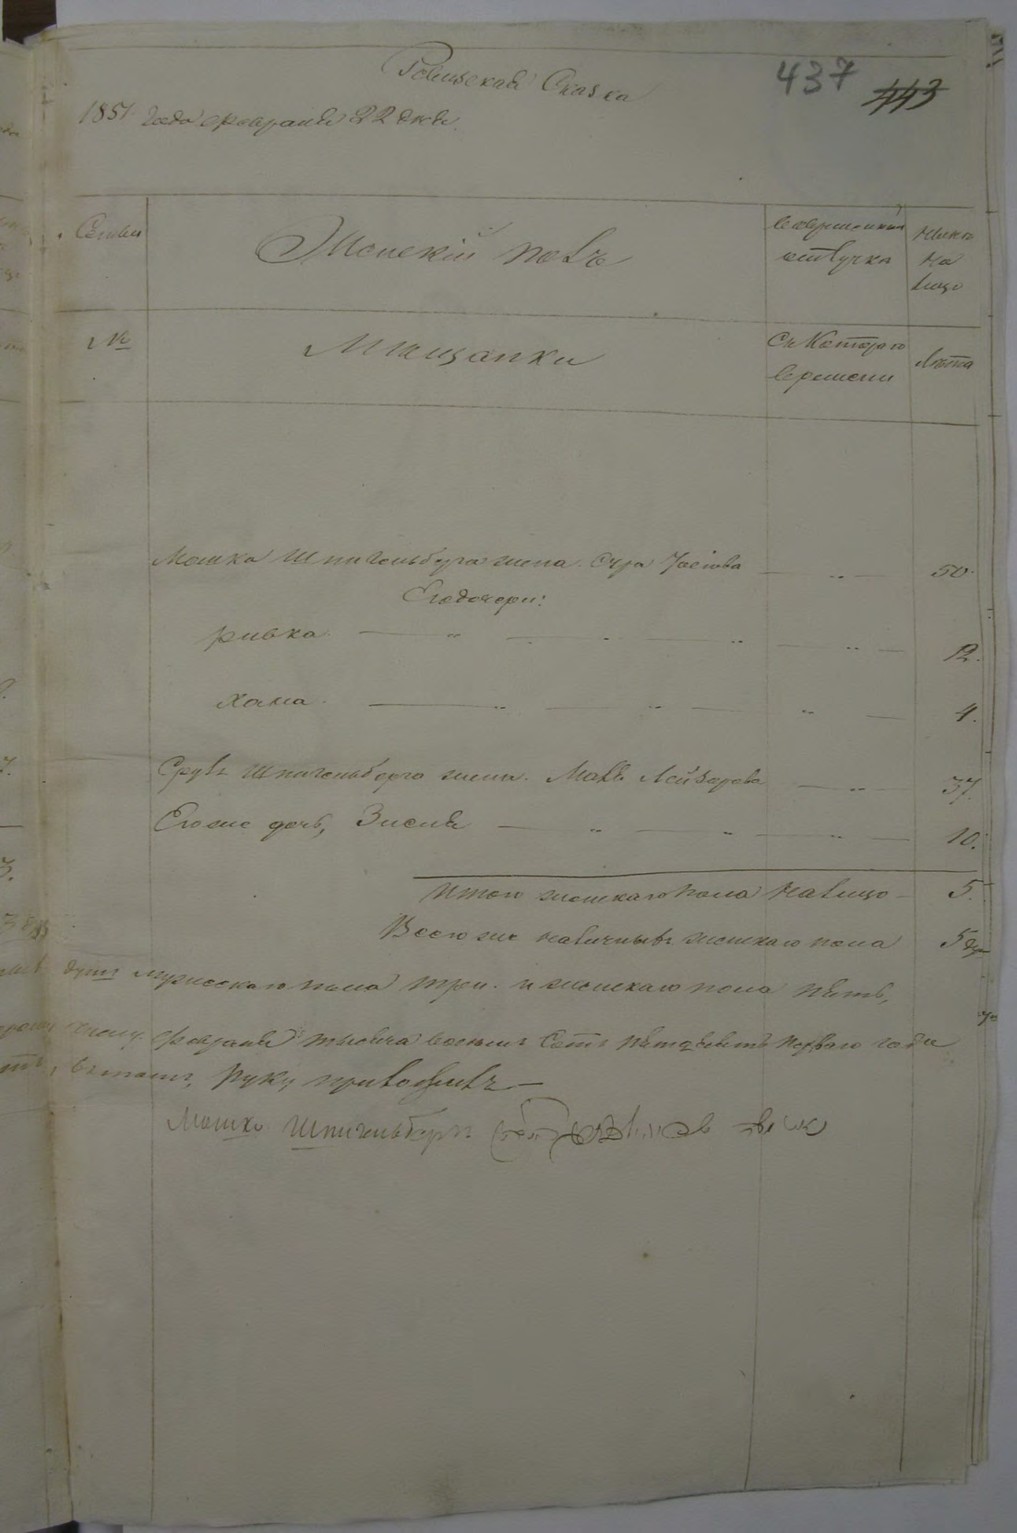 Ревизская Сказка
437
443
1851 года февраля 22 дня
Семьи
Женскій полъ
въ временной
отлучкѣ
Ныне
на
лицо
№
Мещанки
Съ Котораго
времени
Лѣта
Мошка Шпигельберга жена Сура 50
Его дочери:
ривка 12.
хана 4.
Шпигельберга жена Лейзерова 37.
Его же дочь, Зисля 10.
Итого женскаго пола налицо 5.
Всего же наличныхъ женскаго пола 5
душъ мужескаго пола три и женскаго пола пять,
февраля тысяча восемь сотъ пятьдесятъ перваго года
въ томъ, руку приложилъ
Мошко Шпигельбергъ